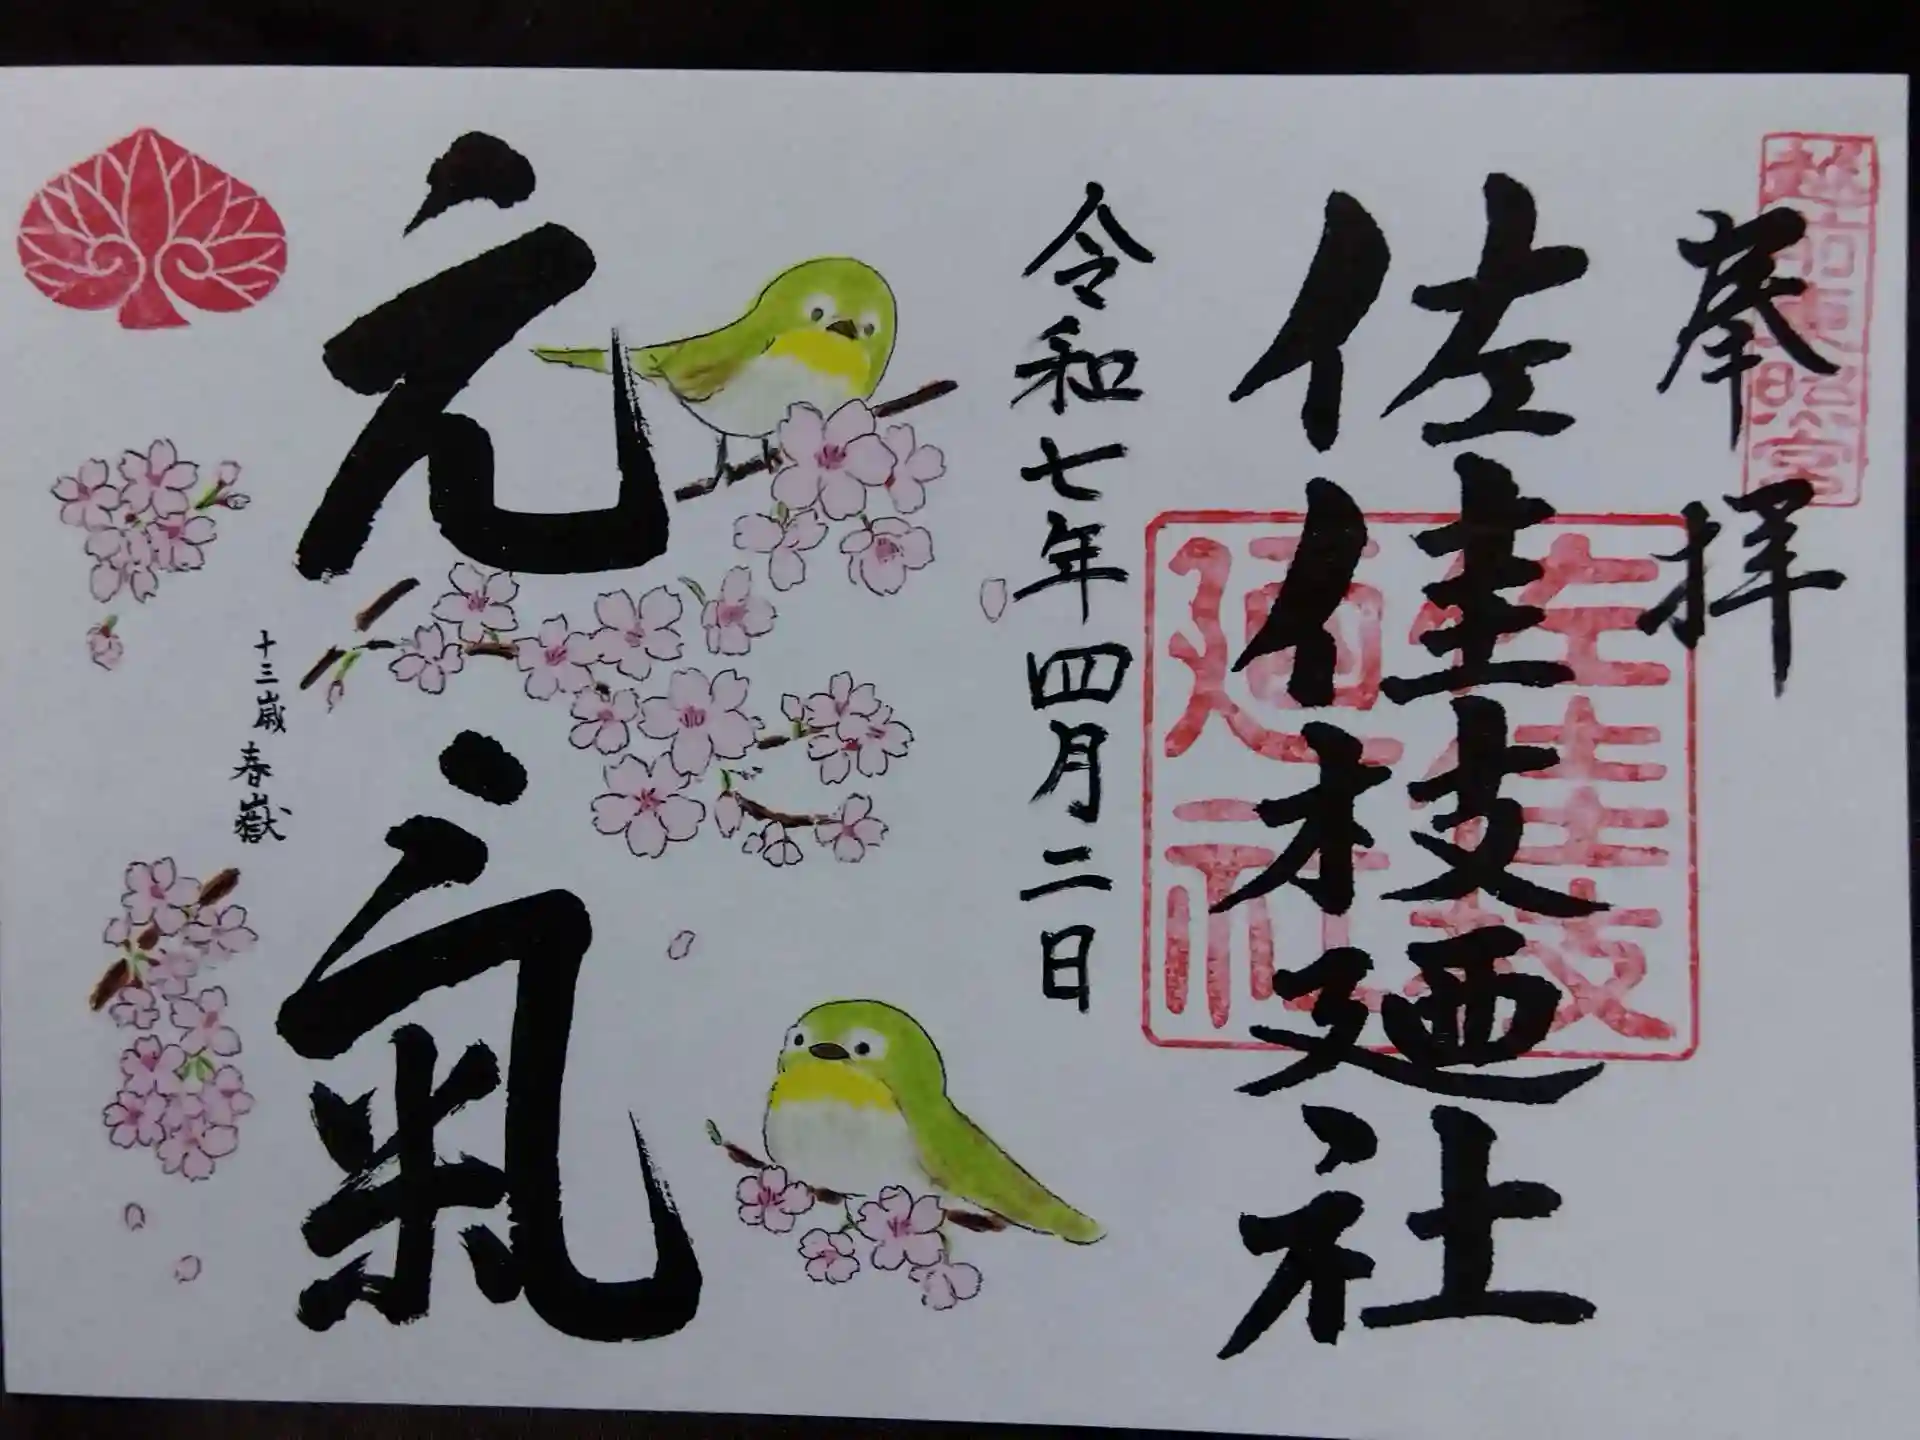 奉拝
越前東照宮
佐佳枝廼社
佐佳枝廼社
令和七年四月二日
元氣
十三歳 春嶽